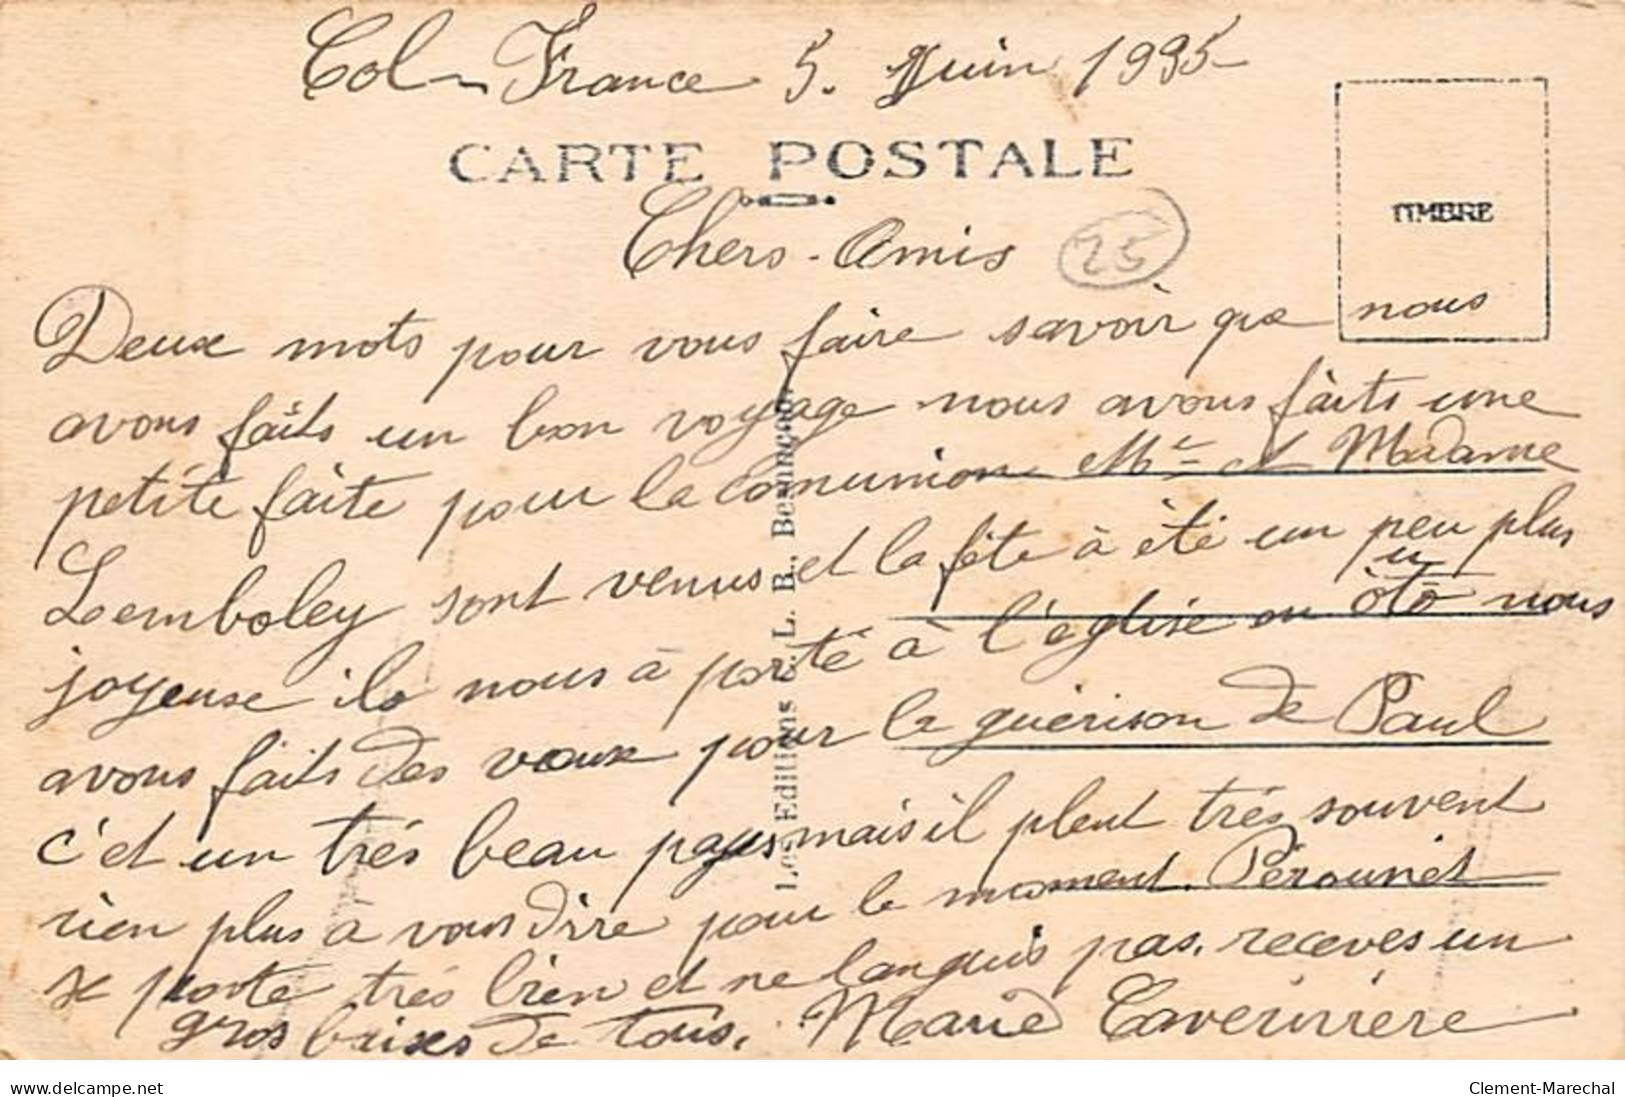 Col-France 5. Juin 1935
CARTE POSTALE
TIMBRE
Chers-Amis
25
Deux mots pour vous faire savoir que nous
avons faits un bon voyage nous avons faits une
petite faite pour la comunion Mr et Madame
Lemboley sont venus et la fête à été un peu plus
joyeuse ils nous à porté à l'église en ôtô nous
avons faits des voeux pour la guérison de Paul
c'et un trés beau pays mais il pleut trés souvent
rien plus a vous dire pour le moment. Pérounet
se porte trés bien et ne languis pas. receves un
gros baixes de tous. Marie Taverniere
Les Editions C. L. B., Besançon
delcampe.net
Clement-Marechal